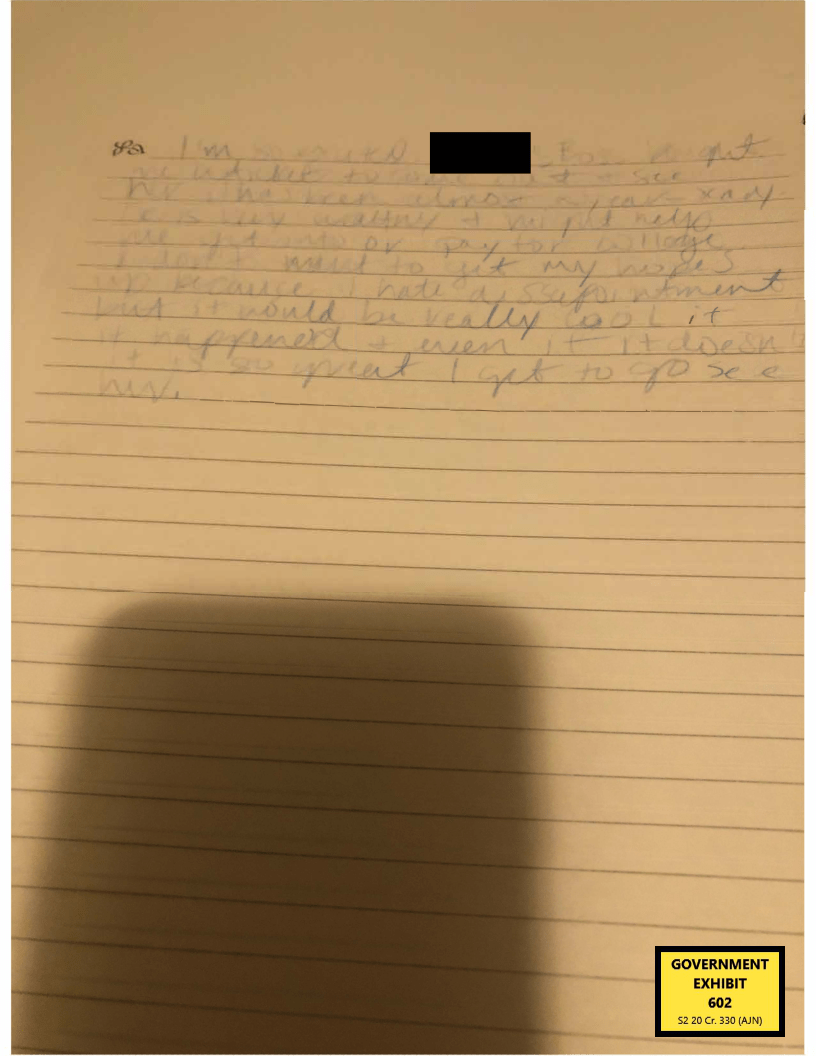 I'm so excited. Boss bought
me a ticket to come out + see
her it has been almost a year + xxxx
he is very wealthy + might help
me get into or pay for college
I don't want to get my hopes
up because I hate dissepointment
but it would be really cool if
it happened + even if it doesn't
it is so great I get to go see
her.
GOVERNMENT
EXHIBIT
602
S2 20 Cr. 330 (AJN)